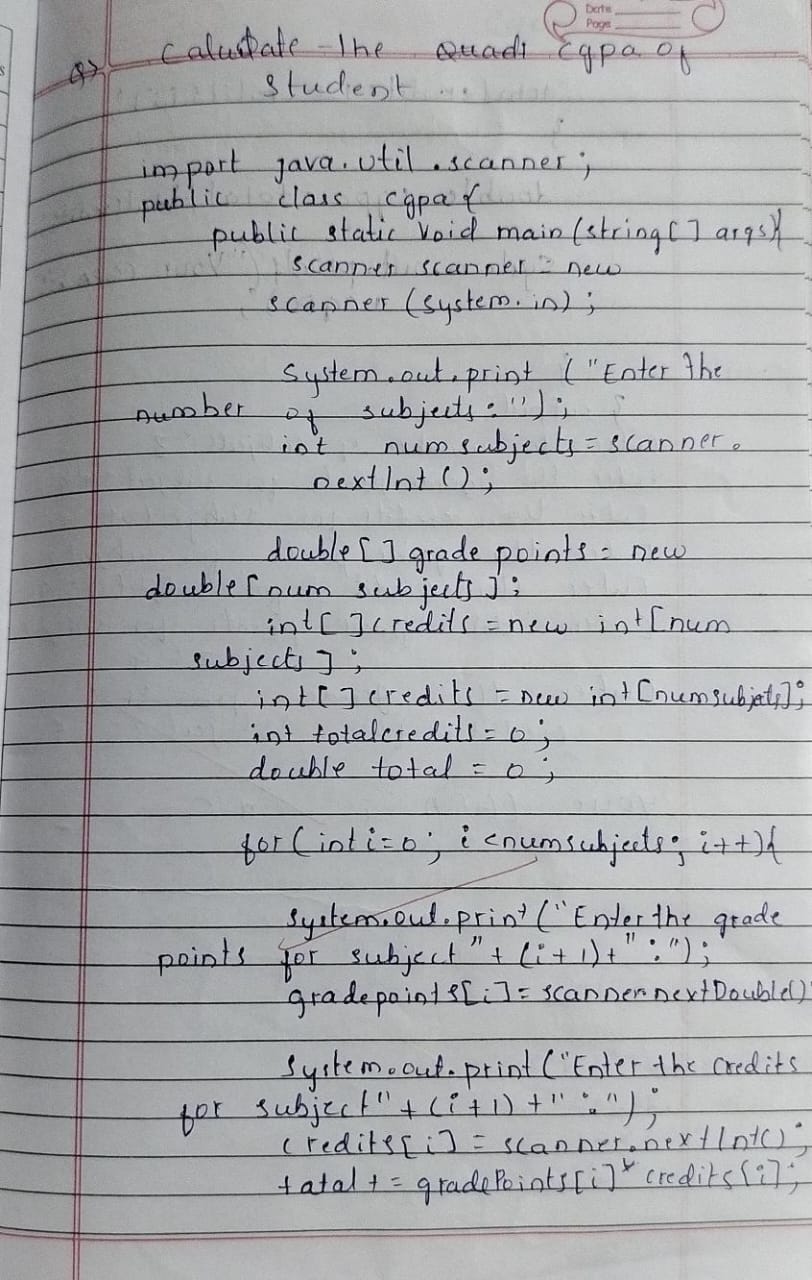 Date
Page
Q> Calculate the Quadi cgpa of
student ..
import java.util.scanner;
public class cgpa{
public static void main(string[] args){
scanner scanner = new
scanner (system.in);
System.out.print ("Enter the
number of subjects:");
int numsubjects = scanner.
nextInt ();
double[] grade points = new
double[num subjects];
int[] credits = new int[num
subjects];
int[] credits = new int[numsubjets];
int totalcredits = 0;
double total = 0;
for(int i=0; i <numsubjects; i++){
system.out.print ("Enter the grade
points for subject"+(i+1)+":");
gradepoints[i]= scanner.nextDouble()
System.out.print ("Enter the credits
for subject"+(i+1)+":");
credits[i] = scanner.nextInt();
tatal += gradePoints[i]* credits[i];